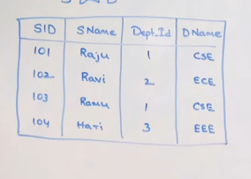 SID SName Dept_Id DName
101 Raju 1 CSE
102 Ravi 2 ECE
103 Ramu 1 CSE
104 Hari 3 EEE